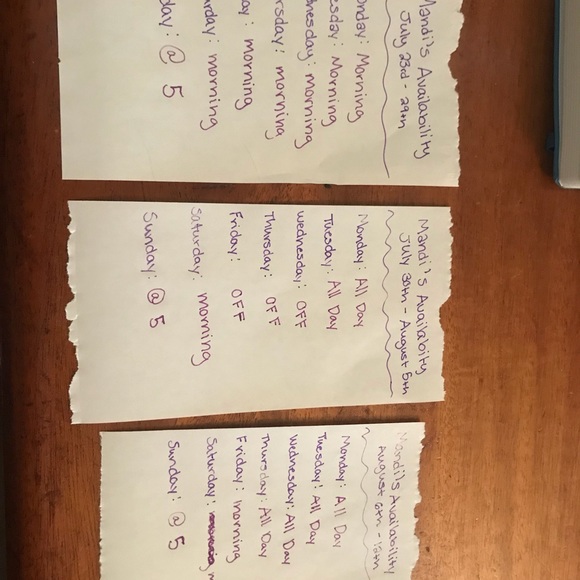 Mandi's Availability
July 23rd - 29th
onday: Morning
esday: Morning
dnesday: morning
rsday: morning
ay: morning
urday: morning
day: @ 5
Mandi's Availabity
July 30th - August 5th
Monday: All Day
Tuesday: All Day
Wednesday: OFF
Thursday: OFF
Friday: OFF
Saturday: morning
Sunday: @ 5
Mandi's Availability
August 6th - 12th
Monday: All Day
Tuesday: All Day
Wednesday: All Day
Thursday: All Day
Friday: morning
Saturday:
Sunday: @ 5